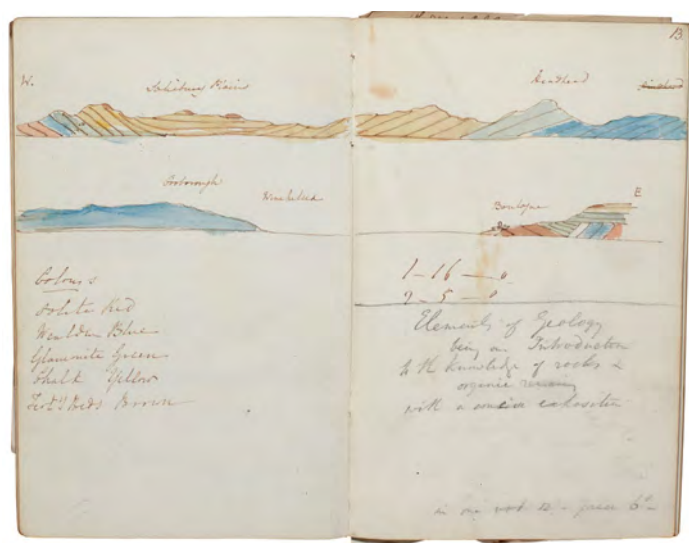 13.
W.
Salisbury Plain
Hindhead
Crowborough
Winchelsea
Boulogne
E
Colours
Oolite Red
Wealden Blue
Glauconite Green
Chalk Yellow
Tert^y Beds Brown
1 – 16 – 0
2 – 5 – 0
Elements of Geology
being an Introduction
to the knowledge of rocks &
organic remains
with a concise
in one vol 12 – price 6